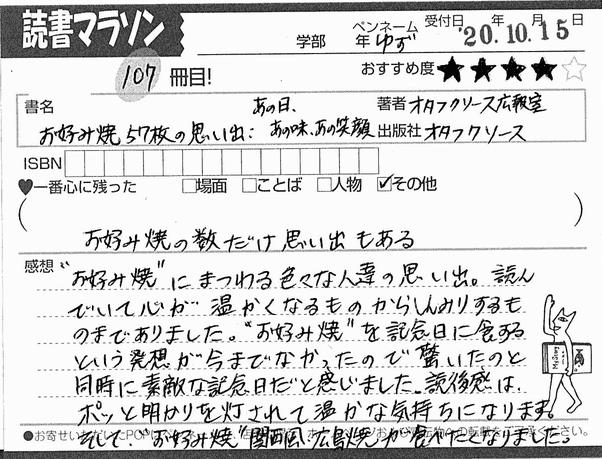 読書マラソン
学部 年 ペンネーム ゆず 受付日 '20.年10.月15日
107冊目! おすすめ度★★★★☆
書名 お好み焼57枚の思い出: あの日、あの味、あの笑顔
著者 オタフクソース広報室
出版社 オタフクソース
ISBN
♥一番心に残った □場面 □ことば □人物 ☑その他
(お好み焼の数だけ思い出もある)
感想 "お好み焼"にまつわる色々な人達の思い出。読ん
でいて心が温かくなるものからしんみりするも
のまでありました。"お好み焼"を記念日に食する
という発想が今までなかったので驚いたのと
同時に素敵な記念日だと感じました。読後感は、
ポッと明かりを灯されて温かな気持ちになります。
そして、"お好み焼"関西風、広島焼が食べたくなりました。
●お寄せいただいたPOPは